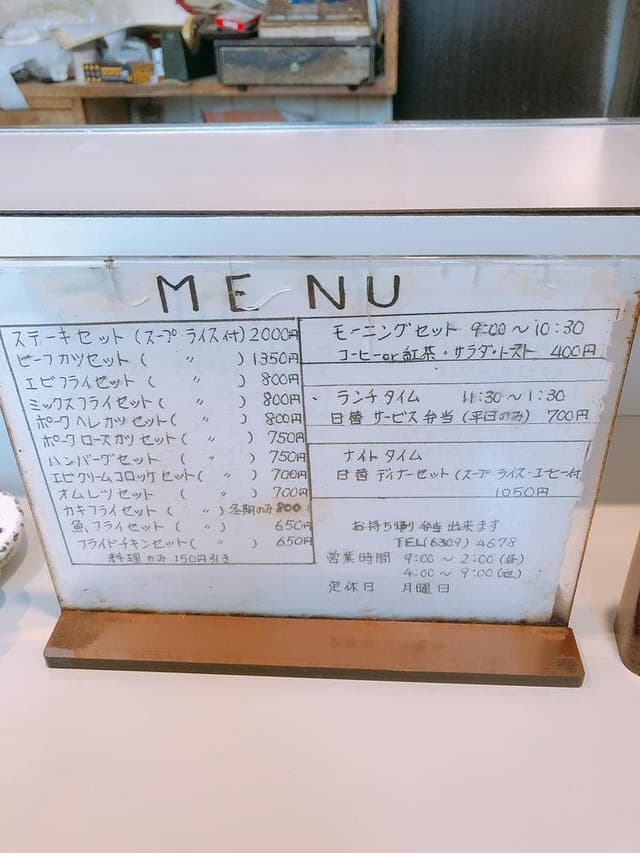 MENU
ステーキセット (スープ・ライス付) 2000円
ビーフカツセット ( 〃 ) 1350円
エビフライセット ( 〃 ) 800円
ミックスフライセット ( 〃 ) 800円
ポークヘレカツセット ( 〃 ) 800円
ポークロースカツセット ( 〃 ) 750円
ハンバーグセット ( 〃 ) 750円
エビクリームコロッケセット ( 〃 ) 700円
オムレツセット ( 〃 ) 700円
カキフライセット ( 〃 ) 冬期のみ 800円
魚フライセット ( 〃 ) 650円
フライドチキンセット ( 〃 ) 650円
料理のみ 150円引き
モーニングセット 9:00〜10:30
コーヒーor紅茶・サラダ・トースト 400円
ランチタイム 11:30〜1:30
日替サービス弁当 (平日のみ) 700円
ナイトタイム
日替ディナーセット (スープ・ライス・コーヒー付
1050円
お持ち帰り弁当出来ます
TEL(6309) 4678
営業時間 9:00〜2:00(昼)
4:00〜9:00(夜)
定休日 月曜日